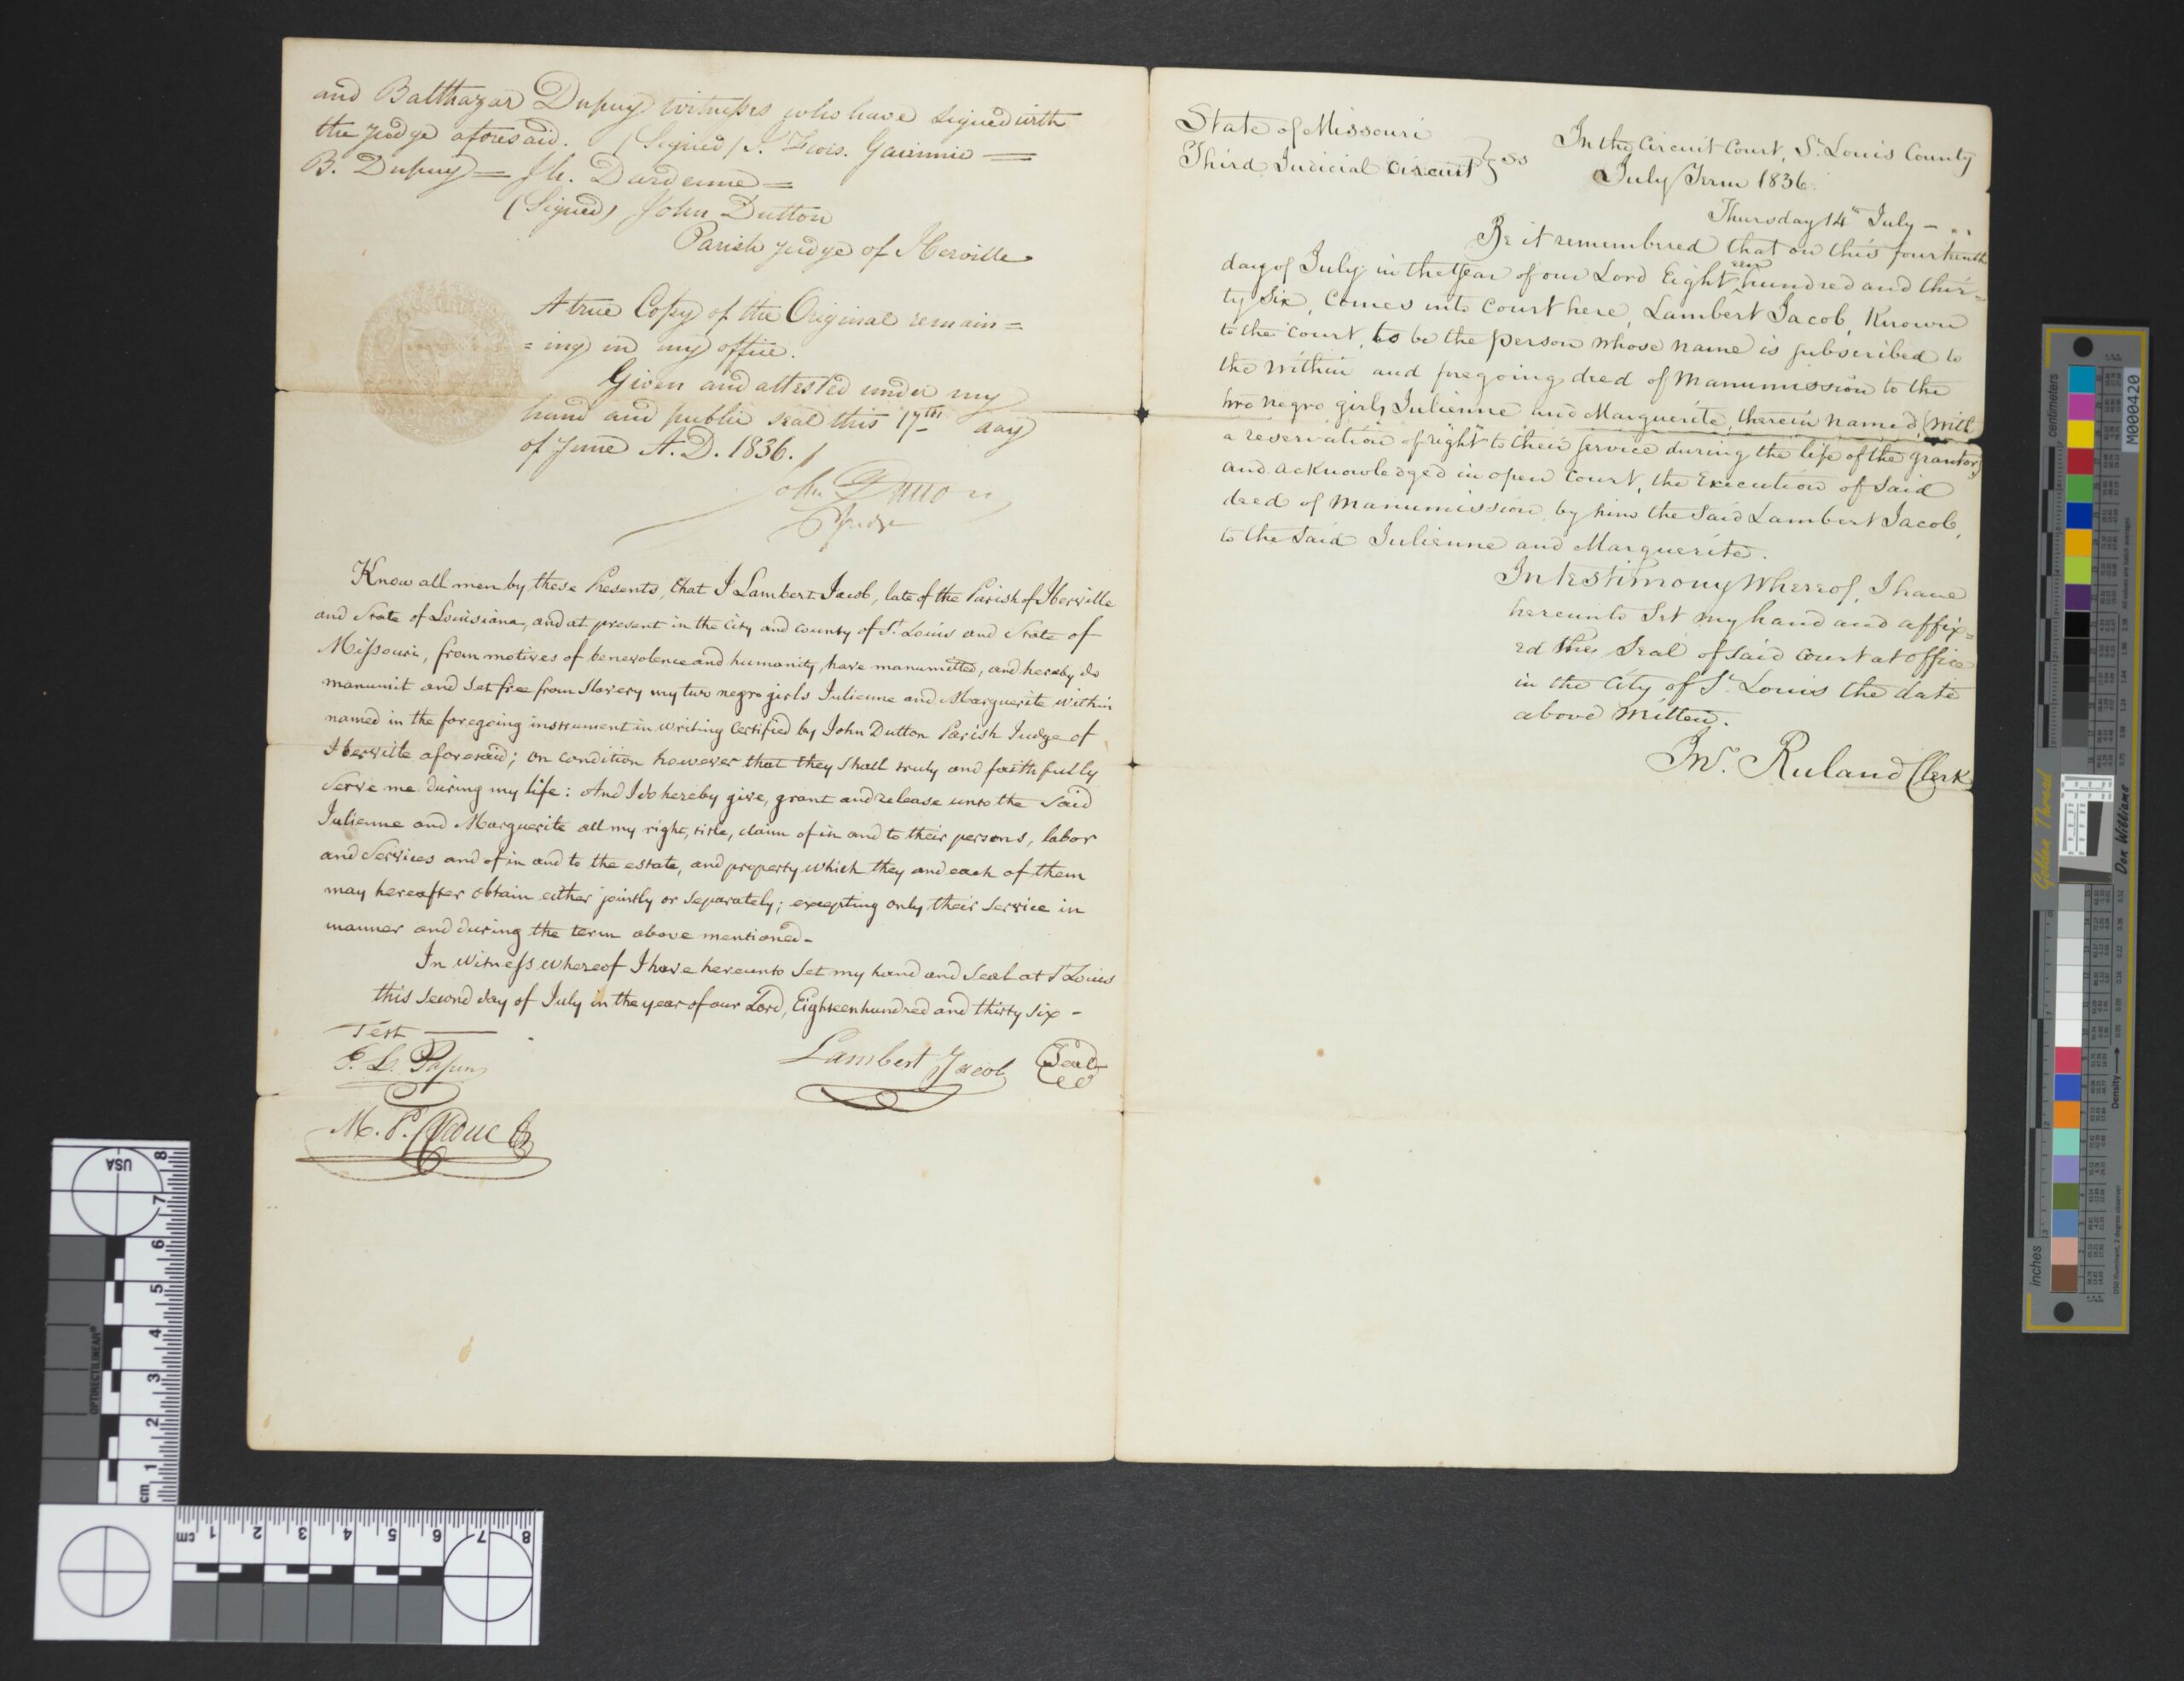 and Balthazar Dupuy witnesses who have signed with
the judge aforesaid. (Signed)
B. Dupuy = Jh. Dardenne =
(Signed) John Dutton
Parish judge of Iberville
A true Copy of the Original remain=
=ing in my office.
Given and attested under my
hand and public seal this 17th day
of June A.D. 1836.
John Dutton
P Judge
Know all men by these Presents, that I Lambert Jacob, late of the Parish of Iberville
and State of Louisiana, and at present in the City and county of St. Louis and State of
Missouri, from motives of benevolence and humanity, have manumitted, and hereby do
manumit and set free from Slavery my two negro girls Julienne and Marguerite within
named in the foregoing instrument in writing Certified by John Dutton Parish Judge of
Iberville aforesaid; on condition however that they shall truly and faithfully
serve me during my life: And I do hereby give, grant and release unto the said
Julienne and Marguerite all my right, title, claim of in and to their persons, labor
and services and of in and to the estate, and property which they and each of them
may hereafter obtain either jointly or separately; excepting only their service in
manner and during the term above mentioned-
In Witness whereof I have hereunto set my hand and seal at St Louis
this second day of July in the year of our Lord, Eighteen hundred and thirty six -
Test
Lambert Jacob Seal
M. P.
State of Missouri
Third Judicial Circuit } ss
In the Circuit Court, St. Louis County
July Term 1836.
Thursday 14th July -
Be it remembered that on this fourteenth
day of July in the Year of our Lord Eighteen hundred and thir=
ty six, Comes into Court here, Lambert Jacob, Known
to the Court, to be the person whose name is subscribed to
the within and foregoing deed of Manumission to the
two negro girls Julienne and Marguerite, therein named, (with
a reservation of right to their service during the life of the grantor)
and acknowledged in open Court, the Execution of said
deed of manumission by him the said Lambert Jacob,
to the said Julienne and Marguerite.
In testimony Whereof, I have
hereunto Set my hand and affix=
ed the Seal of said Court at Office
in the City of St. Louis the date
above written.
Jno. Ruland Clerk
centimeters
inches
Golden Thread
Don Williams
M000420
Density
USA
OPTIRECTILINEAR
8
7
6
5
4
3
2
1
cm
cm 1 2 3 4 5 6 7 8